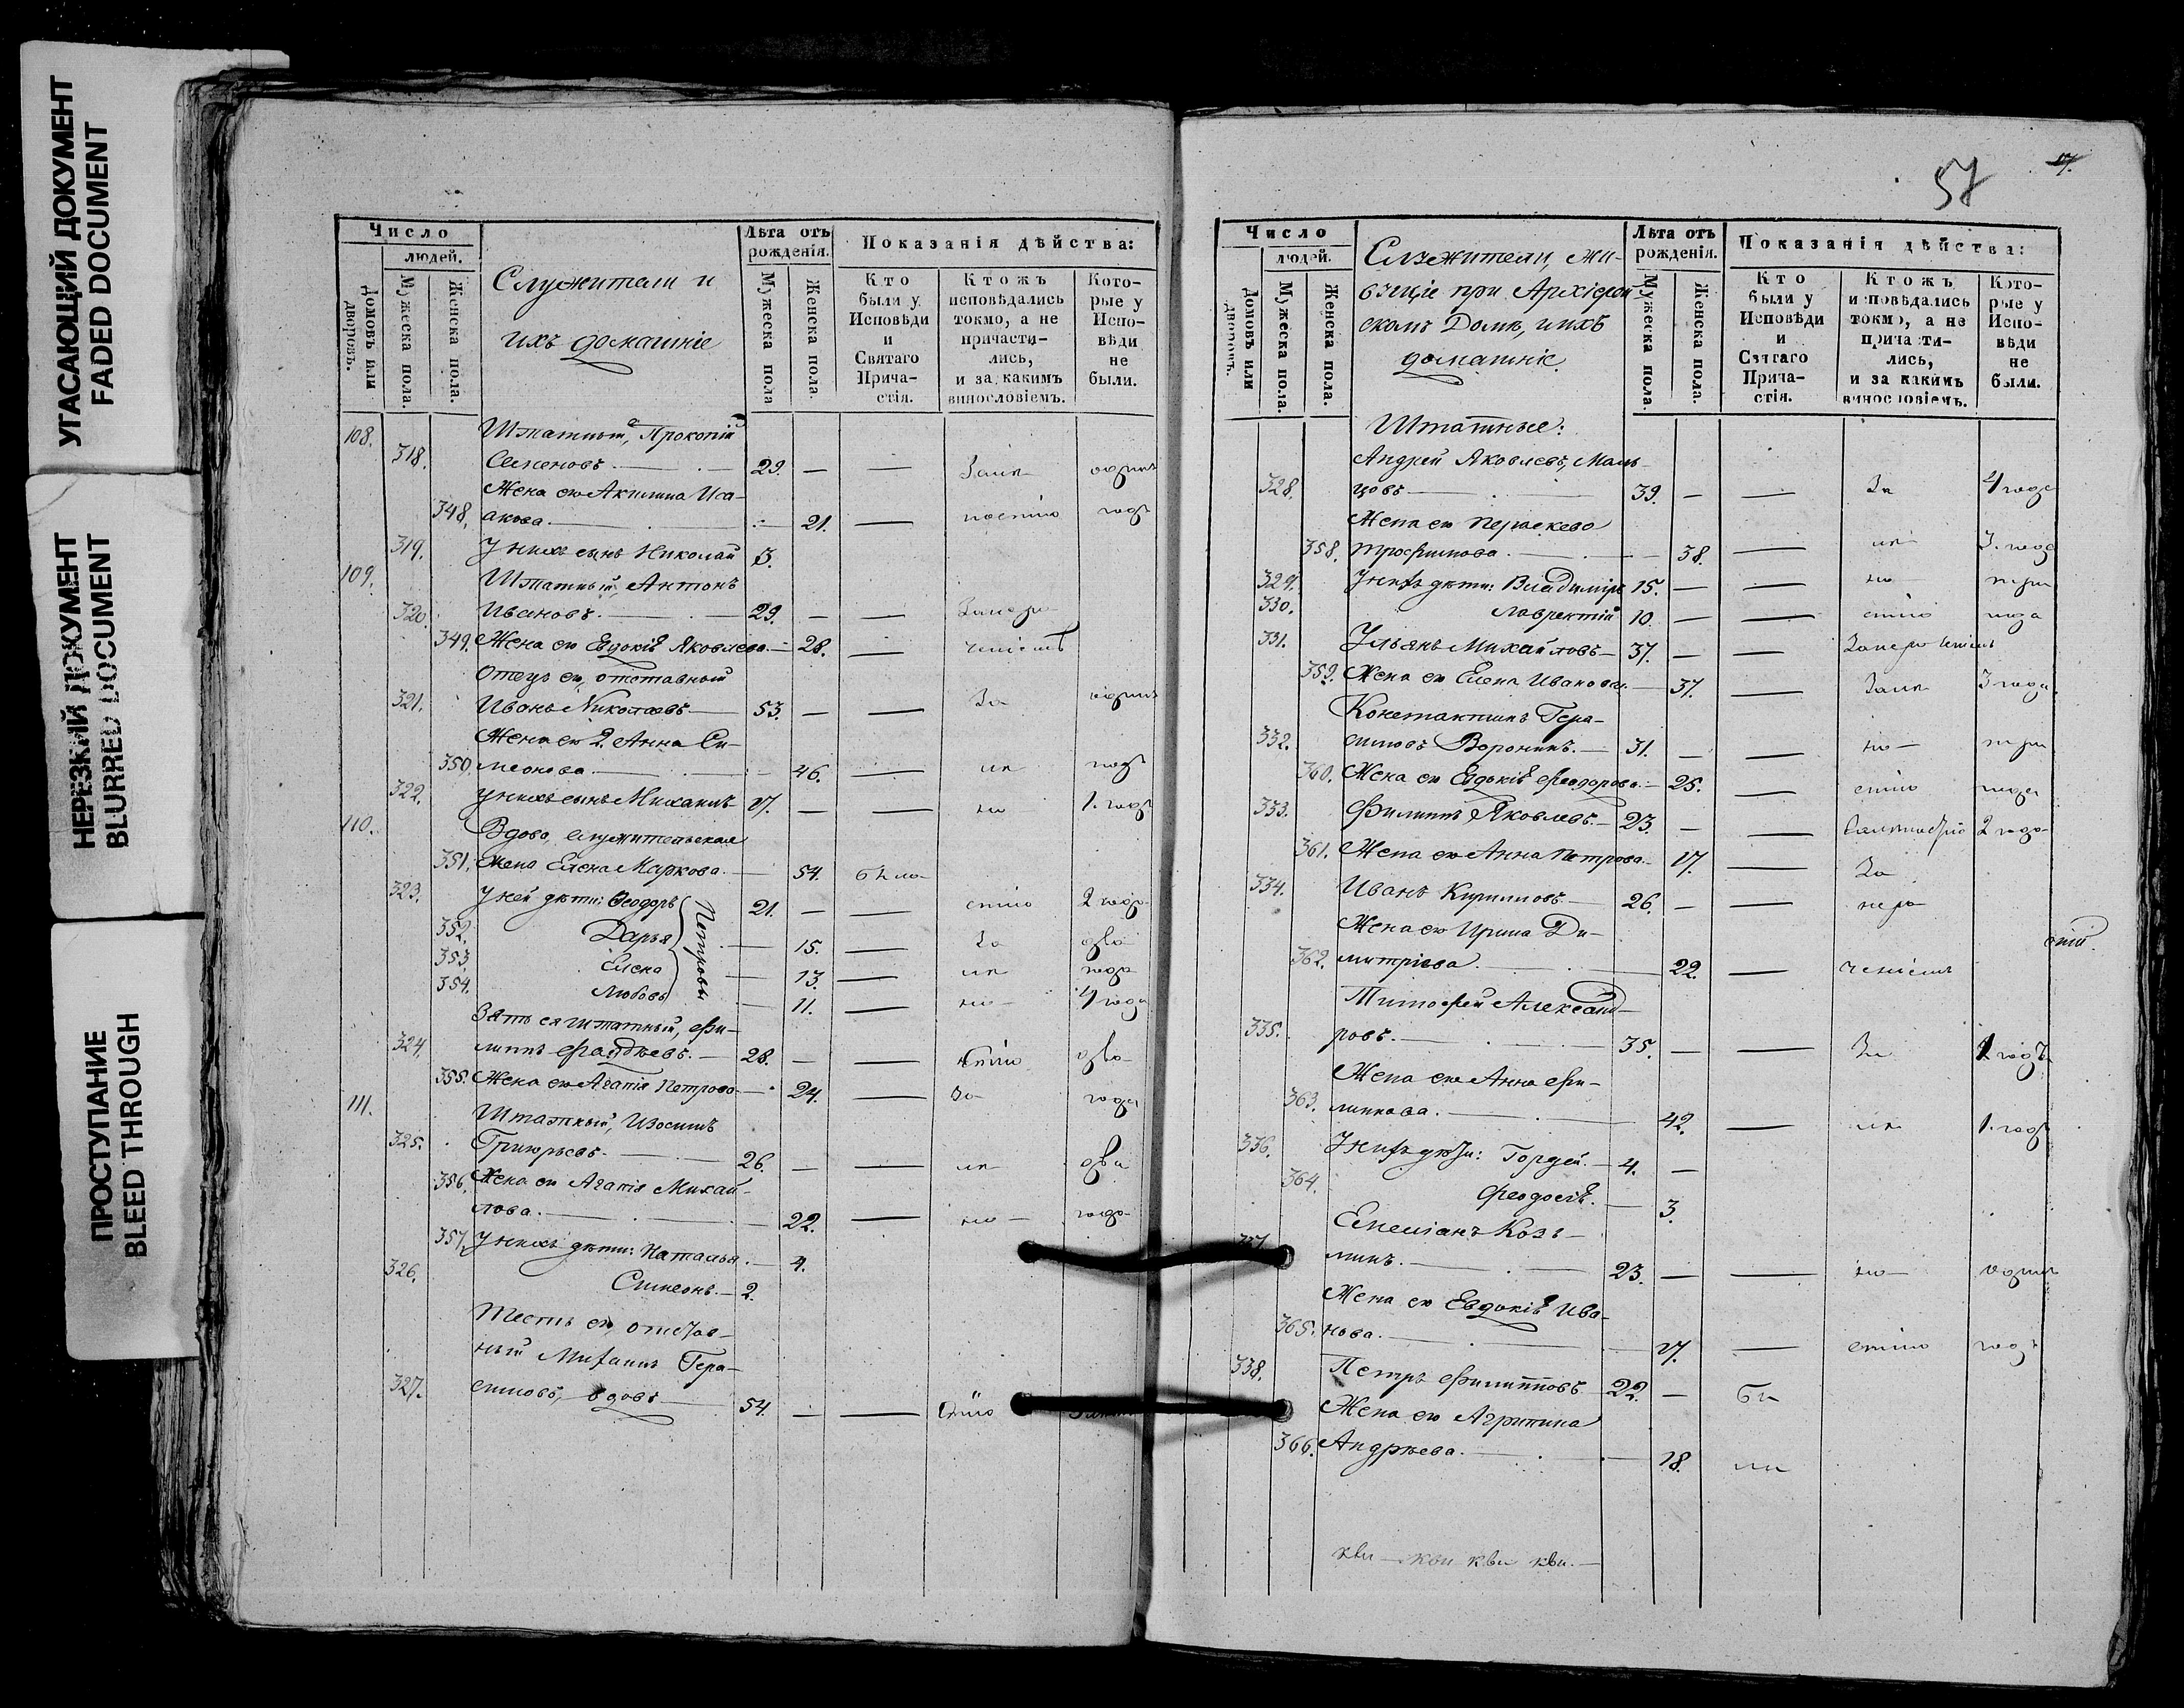 УГАСАЮЩИЙ ДОКУМЕНТ
FADED DOCUMENT
НЕРЕЗКИЙ ДОКУМЕНТ
BLURRED DOCUMENT
ПРОСТУПАНИЕ
BLEED THROUGH
Число
людей.
Домовъ или дворовъ.
Мужеска пола.
Женска пола.
Служители и
ихъ домашніе
Лѣта отъ рожденія.
Мужеска пола
Женска пола
Показанія дѣйства:
Кто были у Исповѣди и Святаго Прича-стія.
Ктожъ исповѣдались токмо, а не причасти-лись, и за какимъ винословіемъ.
Кото-рые у Испо-вѣди не были.
108. Штатный, Прокопій
318. Семеновъ. — 29. — — одинъ
Жена его Акилина Иса-
348. акова. — 21. — годъ
319. У нихъ сынъ Николай 3.
109. Штатный Антонъ
320. Ивановъ. — 29. — —
349. Жена его Евдокія Яковлева. — 28. —
Отецъ ея, отставный
321. Иванъ Николаевъ — 53. — — За одинъ
Жена его 2. Анна Си-
350. меонова. — 46. — годъ
322. У нихъ сынъ Михаилъ 17. — — 1. годъ
110. Вдова, служительская
351. жена Елена Маркова. — 54. была
323. У ней дѣти: Ѳеодоръ 21. — — 2 года
352. Дарья — 15. — За два
353. Елена — 13. — года
354. Любовь — 11. — 4 года
Петровы
Зять ея штатный, Фи-
324. липпъ Фаддѣевъ. — 28. — — два
355. Жена его Агапія Петрова — 24. — За года
111. Штатный, Изосимъ
325. Григорьевъ. — 26. — — два
356. Жена его Агапія Михай-
лова. — 22. — года
357. У нихъ дѣти: Наталья. — 4.
326. Симеонъ. — 2.
Тесть его, отстав-
ный Михаилъ Гера-
327. симовъ, вдовъ — 54. — —
57
17.
Число
людей.
Домовъ или дворовъ.
Мужеска пола.
Женска пола.
Служители, жи-
вущіе при Архіерей-
скомъ Домѣ, и ихъ
домашніе
Лѣта отъ рожденія.
Мужеска пола.
Женска пола.
Показанія дѣйства:
Кто были у Исповѣди и Святаго Прича-стія.
Ктожъ исповѣдались токмо, а не причасти-лись, и за какимъ винословіемъ.
Кото-рые у Испо-вѣди не были.
Штатные:
Андрей Яковлевъ, Маль-
328. цовъ — 39. — — За 4 года
Жена его Параскева
358. Трофимова. — 38. — 3. года
329. У нихъ дѣти: Владиміръ 15. — — три
330. Лаврентій 10. — — года
331. Ульянъ Михайловъ — 37. — —
359. Жена его Елена Иванова. — 37. — 3 года
Константинъ Гера-
332. симовъ Воронинъ. — 31. — — три
360. Жена его Евдокія Феодорова. — 25. — года
333. Филиппъ Яковлевъ. — 23. — — 2 года
361. Жена его Анна Петрова. — 17. — За
334. Иванъ Кириловъ — 26. — —
Жена его Ирина Ди-
362. митріева. — 22. —
Тимофей Александ-
335. ровъ. — 35. — — За 1 годъ
Жена его Анна Фи-
363. липпова. — 42. — 1. годъ
336. У нихъ дѣти: Гордей. — 4. —
364. Феодосія. — 3.
Емеліанъ Козь-
337. минъ. — 23. — — одинъ
Жена его Евдокія Ива-
365. нова. — 17. — годъ
338. Петръ Филипповъ 22. — Бы
Жена его Агрипина
366. Андрѣева. — 18. ли